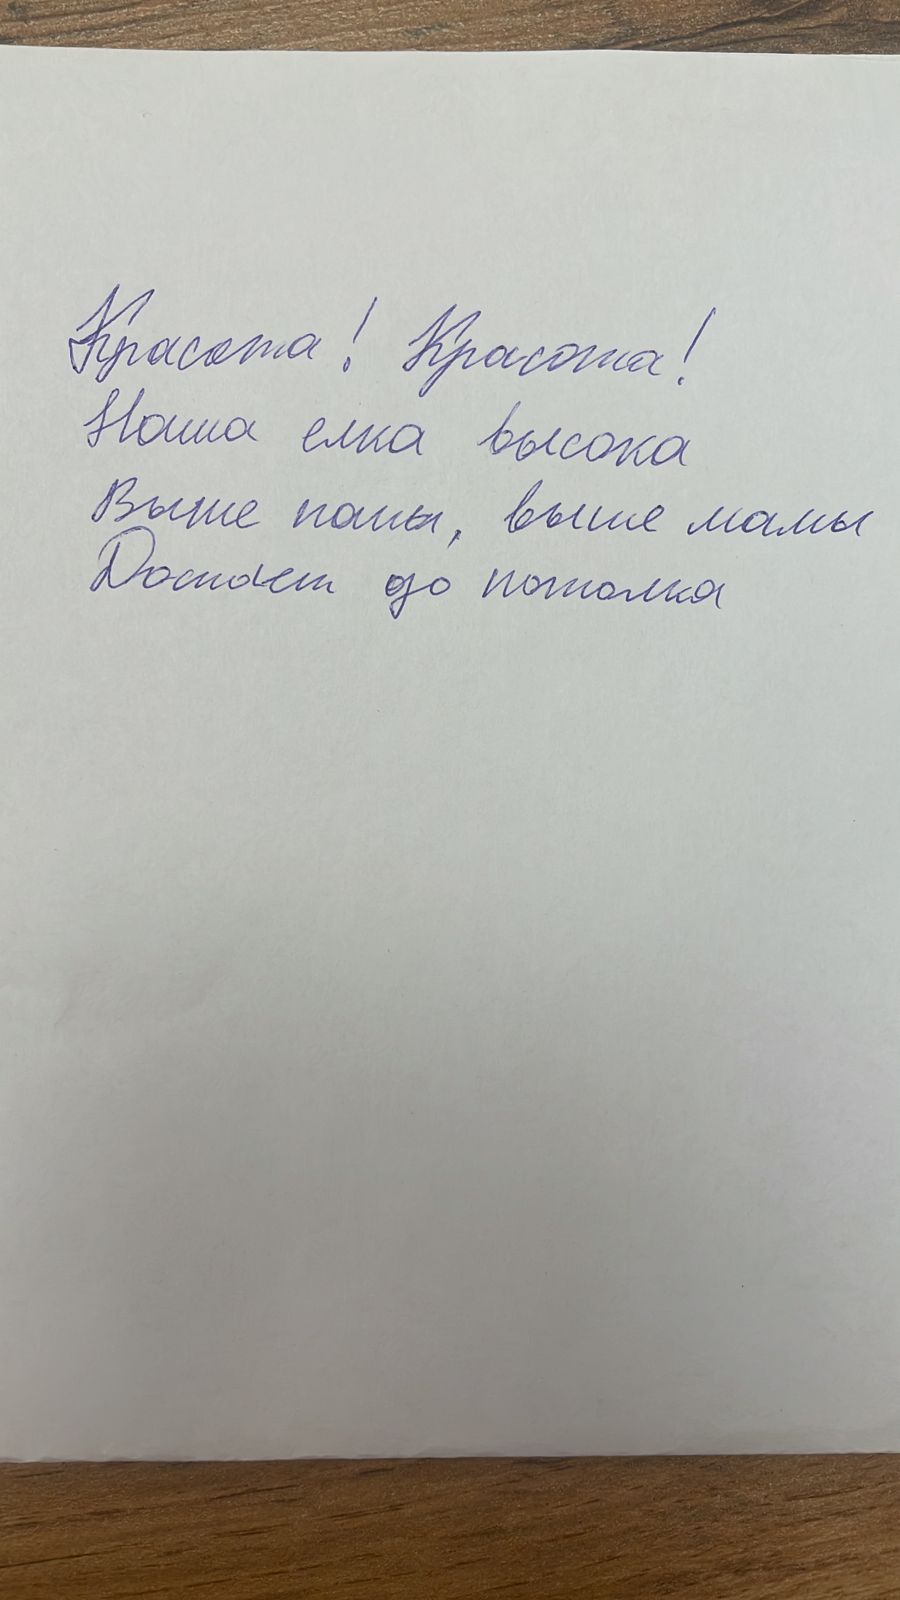 Красота! Красота!
Наша елка высока
Выше папы, выше мамы
Достает до потолка